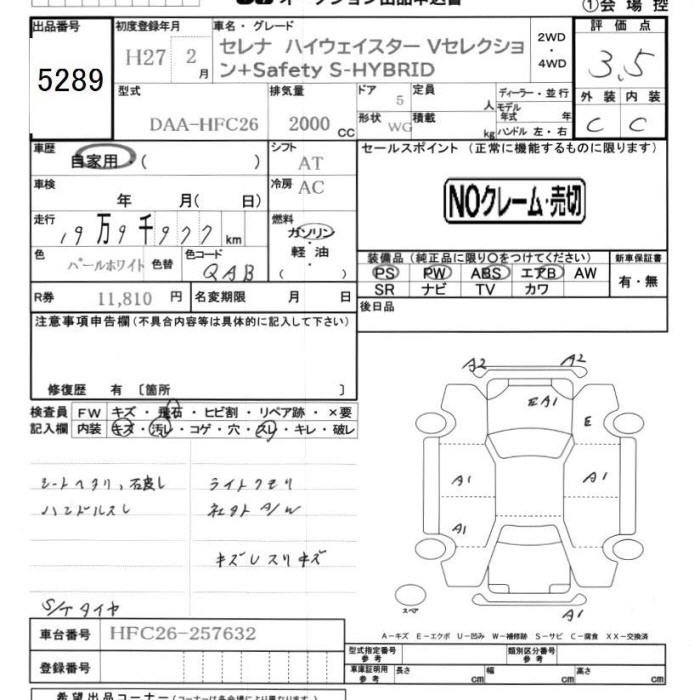 オークション出品申込書
①会場控
出品番号
5289
初度登録年月
H27 2月
車名・グレード
セレナ ハイウェイスター Vセレクショ
ン+Safety S-HYBRID
2WD
・4WD
評価点
3.5
外装 内装
C C
型式
DAA-HFC26
排気量
2000 CC
ドア
5
定員
人
形状
WG
積載
kg
ディーラー・並行
モデル年式 年
ハンドル 左・右
車歴
自家用・( )
シフト
AT
セールスポイント (正常に機能するものに限ります)
NOクレーム・売切
車検
年 月( 日)
冷房
AC
走行
19万9千977 km
燃料
ガソリン
・軽油
( )
色
パールホワイト
色替
色コード
QAB
装備品 (純正品に限り○をつけてください)
PS PW ABS エアB AW
SR ナビ TV カワ
新車保証書
有・無
R券 11,810 円
名変期限 月 日
後日品
注意事項申告欄 (不具合内容等は具体的に記入して下さい)
修復歴 有 〔箇所 〕
検査員
記入欄
FW キズ・飛石・ヒビ割・リペア跡・×要
内装 キズ・汚レ・コゲ・穴・スレ・キレ・破レ
シートヘタリ、右戻し
ハンドルスレ
ライトクモリ
社外A/W
キズレスリキズ
S/Tタイヤ
A2 A2
EA1
E
A1 A1
A1
A1
スペア
A−キズ E−エクボ U−凹み W−補修跡 S−サビ C−腐食 XX−交換済
車台番号 HFC26-257632
登録番号
型式指定番号
参考
類別区分番号
参考
車庫証明用
参考
長さ cm 幅 cm 高さ cm
希望出品コーナー